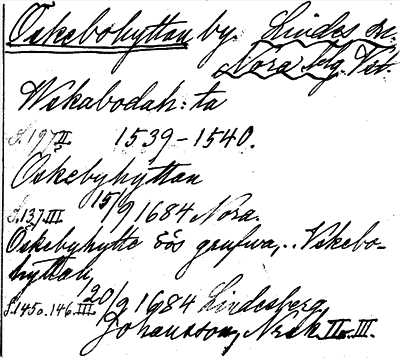 Oskebohyttan by. Lindes sn.
Nora bg. Vst.
Wskabodah:ta
S.197 II. 1539-1540.
Oskebyhyttan
S.137.III. 15/9 1684 Nora.
Oskebyhytte öös grufwa, Vskebo-
hyttan,
S.145 o. 146.III. 20/9 1684 Lindesberg
Johansson, Nrsk II o. III.